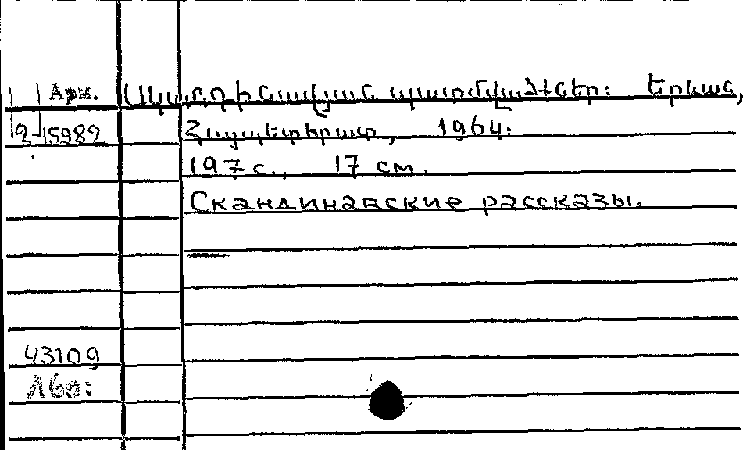 Арм. Սկանդինավյան պատմվածներ: Երևան,
2-15989 Հայպետհրատ, 1964.
197 с., 17 см.
Скандинавские рассказы.
43109